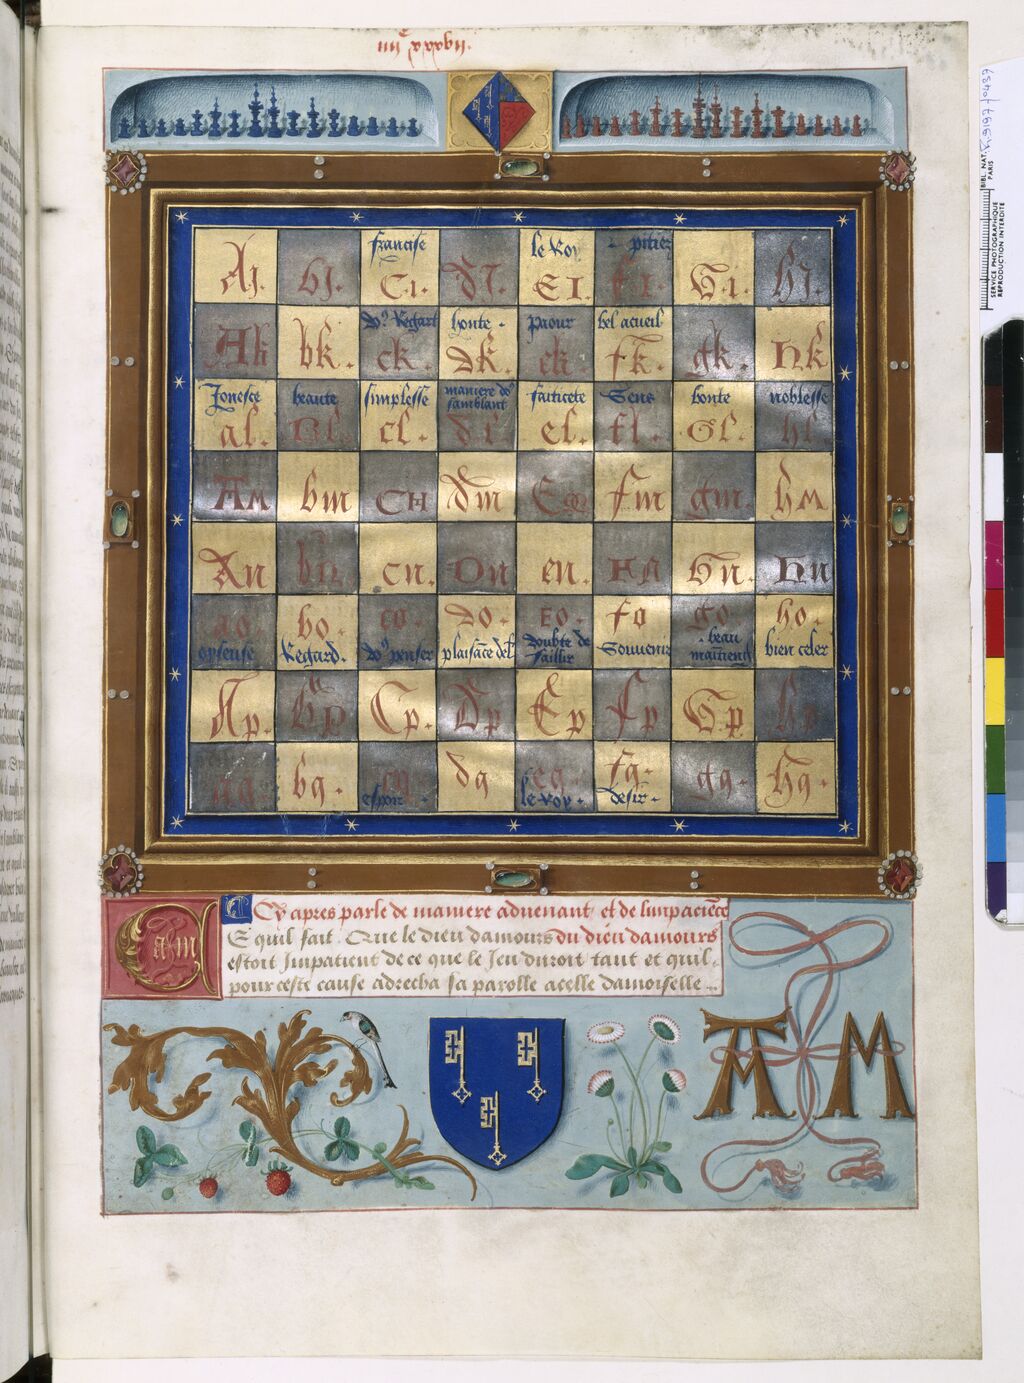 iiiiᶜ xxxvii.
Aj. bj. franchise C.i. Dj. le Roy E I. pitiez f I. G.i. hj.
Ak bk. do9 Regart ck. honte. Dk. paour ek. bel acueil fk. gk. hk.
Jonesce al. beaute Bl. simplesse cl. maniere do9 samblant dl. faiticete el. Sens fl. bonte Gl. noblesse hl.
AM bm CM dm Em fm gm. hM
An bn cn. Dn en. Fn Gn. Hn
ao. bo. co. Do. EO. fo go. ho.
oyseuse Regard. do9 penser plaisāce doubte de faillir Souvenir beau maītieng bien celer
Ap. bp Cp. Dp Ep fp Gp hp
aq. bq. cq. espoir. dq eq. le Roy. fq. desir. gq. hq.
Cy apres parle de maniere aduenant et de limpaciēce
E quil fait. Que le dieu damours du dieu damours
estoit Jmpatient de ce que le Jeu duroit tant et quil.
pour ceste cause adrecha sa parolle a celle damoiselle
A M
BIBL. NAT.
PARIS
SERVICE PHOTOGRAPHIQUE
REPRODUCTION INTERDITE